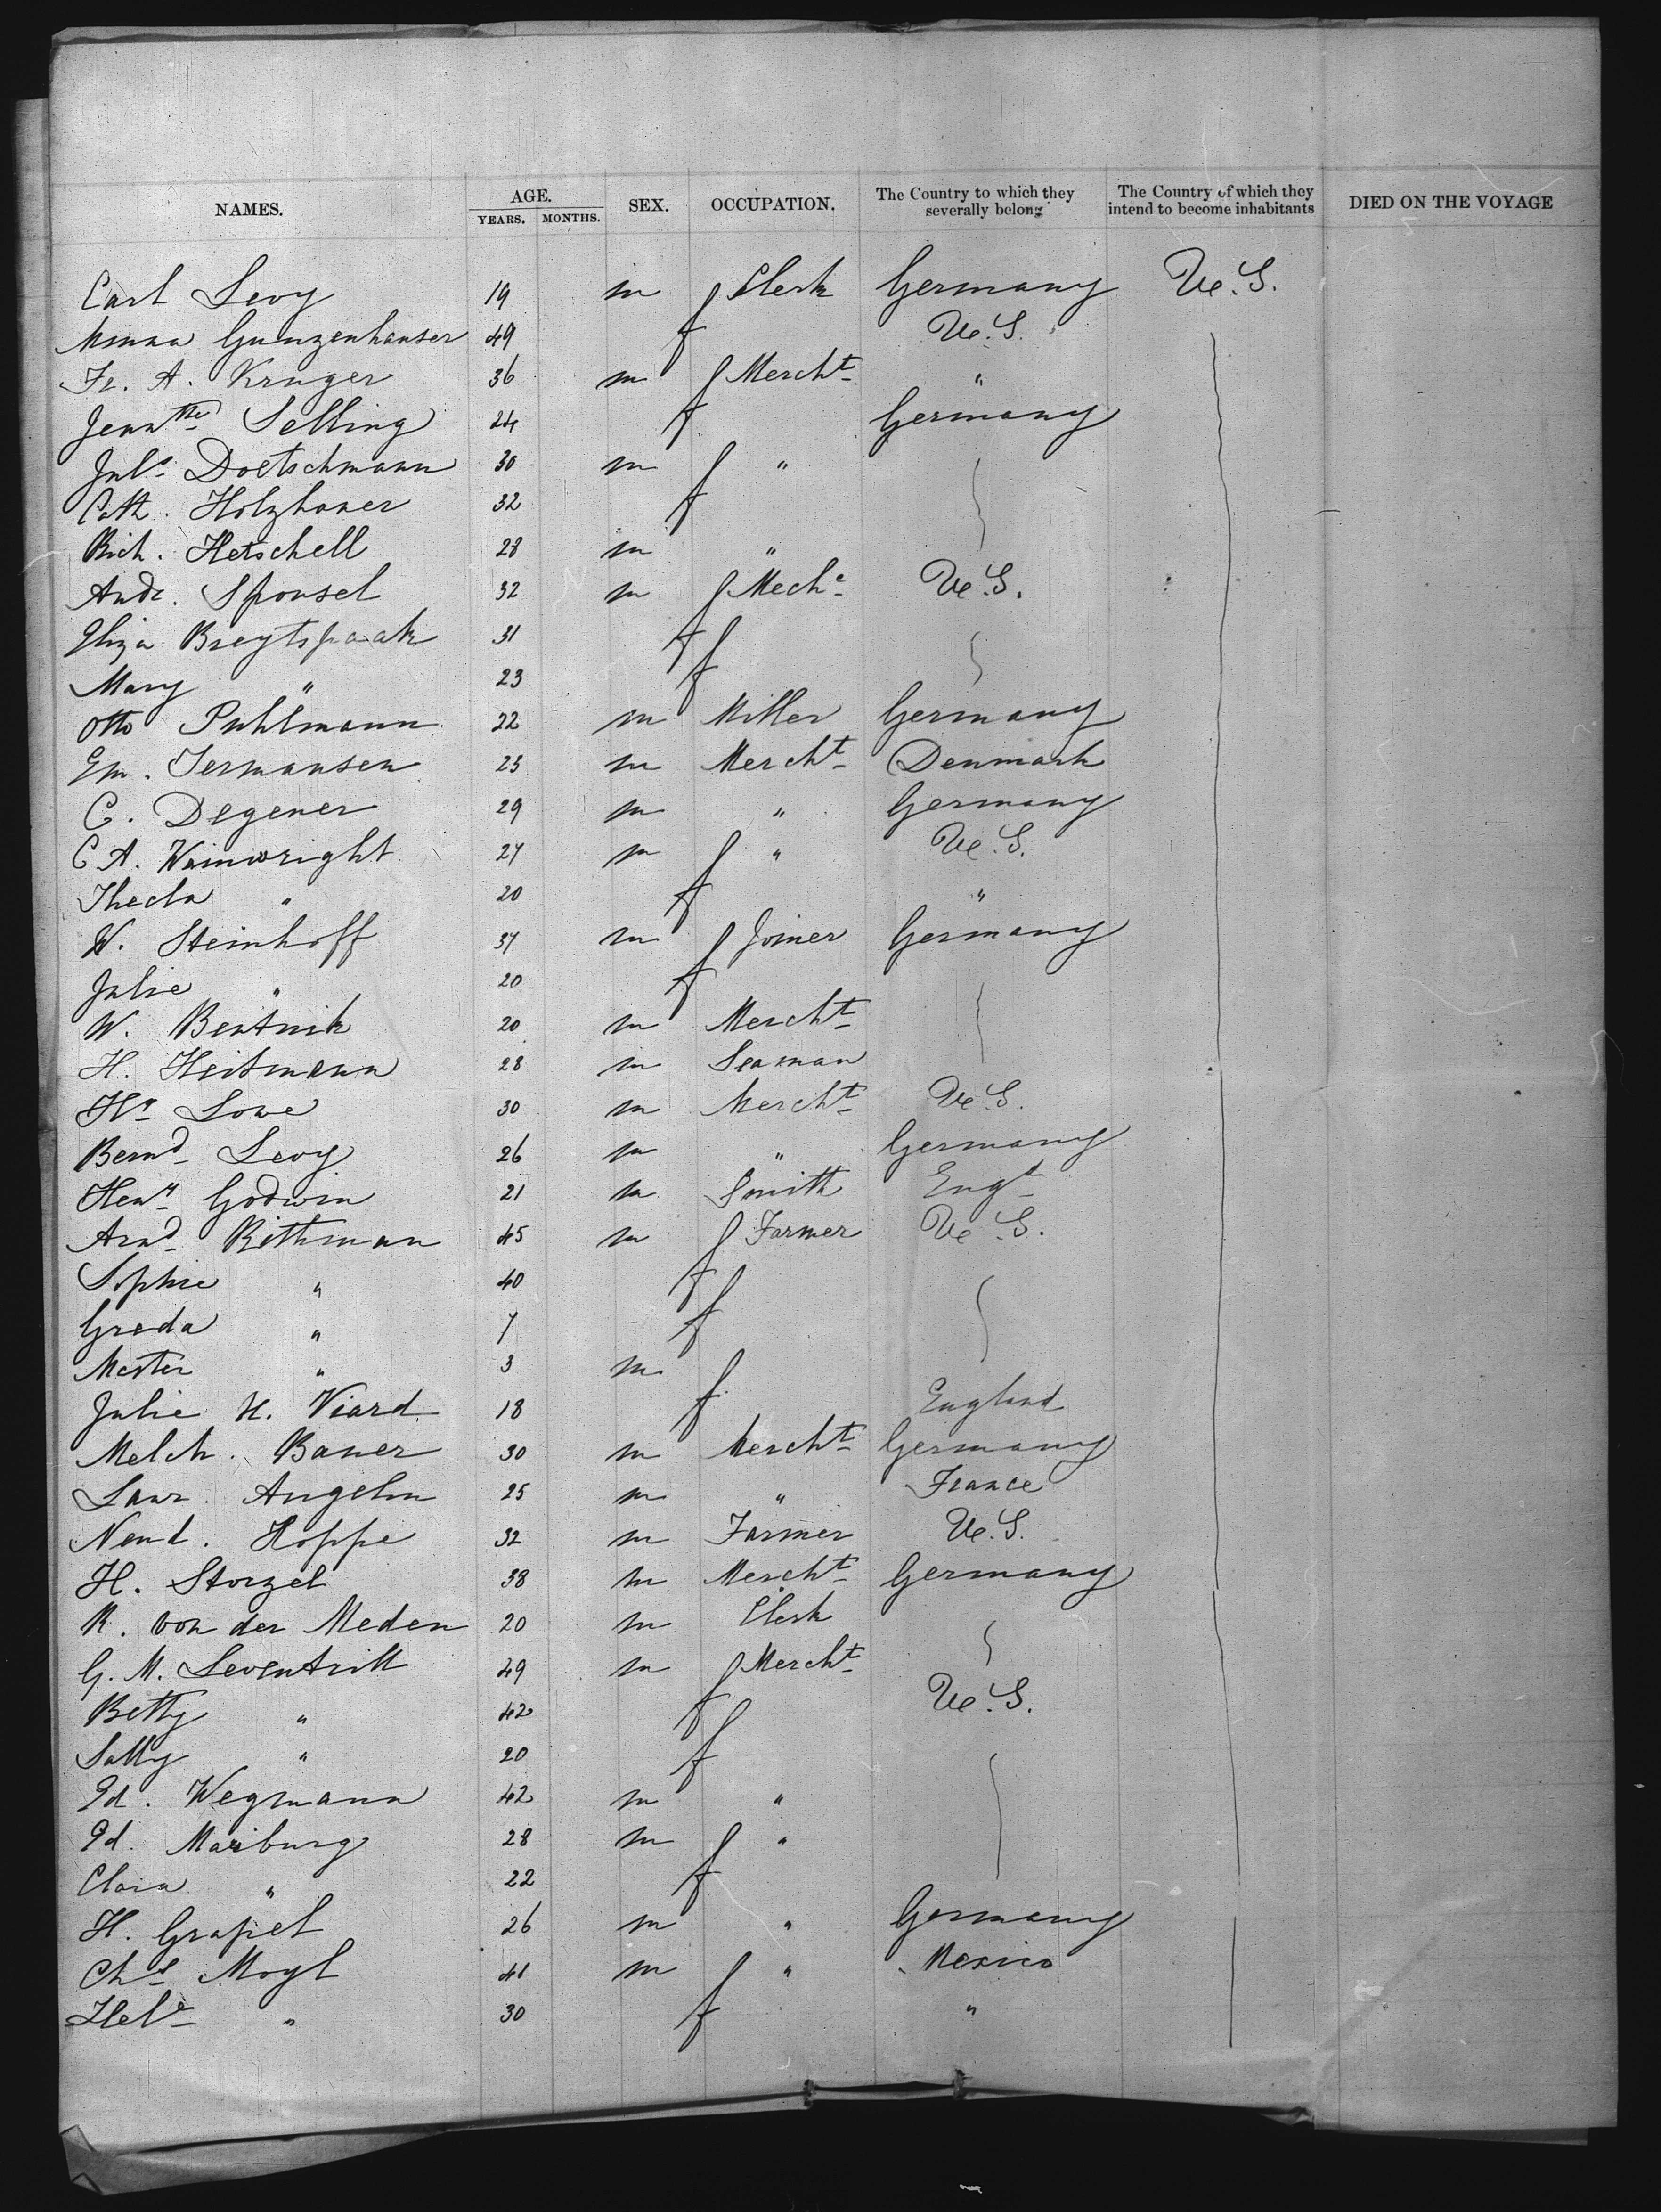 NAMES. AGE. YEARS. MONTHS. SEX. OCCUPATION. The Country to which they severally belong The Country of which they intend to become inhabitants DIED ON THE VOYAGE
Carl Levy 19 m Clerk Germany U.S.
Minna Gunzenhauser 49 f U.S.
Fr. A. Kruger 36 m Mercht "
Jenntte Selling 24 f Germany
Juls Doetschmann 30 m "
Cath. Holzhauer 32 f
Rich. Hetschell 28 m "
Andr. Sponsel 32 m Mechc U.S.
Eliza Breytspaak 31 f
Mary " 23 f
Otto Puhlmann 22 m Miller Germany
Em. Jermansen 23 m Mercht Denmark
C. Degener 29 m " Germany
C A. Wainwright 27 m " U.S.
Thecla " 20 f "
W. Steinhoff 37 m Joiner Germany
Julie " 20 f
W. Bentrik 20 m Mercht
H. Heitmann 28 m Seaman
Hy Lowe 30 m Mercht U.S.
Bernd Levy 26 m " Germany
Heny Godwin 21 m Smith Engd
Arnd Rithman 45 m Farmer U.S.
Sophie " 40 f
Greda " 7 f
Mester " 3 m
Julie H. Viard 18 f England
Melch. Bauer 30 m Mercht Germany
Laur. Angelin 25 m " France
Nend. Hoppe 32 m Farmer U.S.
H. Storzel 38 m Mercht Germany
R. von der Meden 20 m Clerk
G. M. Leventritt 49 m Mercht
Betty " 42 f U.S.
Sally " 20 f
Ed. Wegmann 42 m "
Ed. Mariburg 28 m "
Clara " 22 f
H. Grapel 26 m " Germany
Chs Moyl 41 m " Mexico
Hele " 30 f "